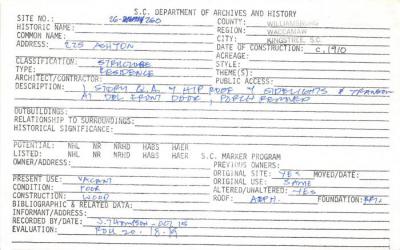 S.C. DEPARTMENT OF ARCHIVES AND HISTORY
SITE NO.: 260
COUNTY: WILLIAMSBURG
HISTORIC NAME:
REGION: WACCAMAW
COMMON NAME:
CITY: KINGSTREE, S.C.
ADDRESS: 225 ASHTON
DATE OF CONSTRUCTION: C. 1910
ACREAGE:
CLASSIFICATION: STRUCTURE
STYLE:
TYPE: RESIDENCE
THEME(S):
ARCHITECT/CONTRACTOR:
PUBLIC ACCESS:
DESCRIPTION: 1 STORY HIP ROOF SIDELIGHTS & TRANSOM
AT DBL FRONT DOOR, PORCH
OUTBUILDINGS:
RELATIONSHIP TO SURROUNDINGS:
HISTORICAL SIGNIFICANCE:
POTENTIAL: NHL NR NRHD HABS HAER
LISTED: NHL NR NRHD HABS HAER S.C. MARKER PROGRAM
OWNER/ADDRESS:
PREVIOUS OWNERS:
ORIGINAL SITE: YES MOVED/DATE:
PRESENT USE: VACANT
ORIGINAL USE: SAME
CONDITION: POOR
ALTERED/UNALTERED: YES
CONSTRUCTION: WOOD
ROOF: ASPH. FOUNDATION:
BIBLIOGRAPHIC & RELATED DATA:
INFORMANT/ADDRESS:
RECORDED BY/DATE: J. THOMASON
EVALUATION: